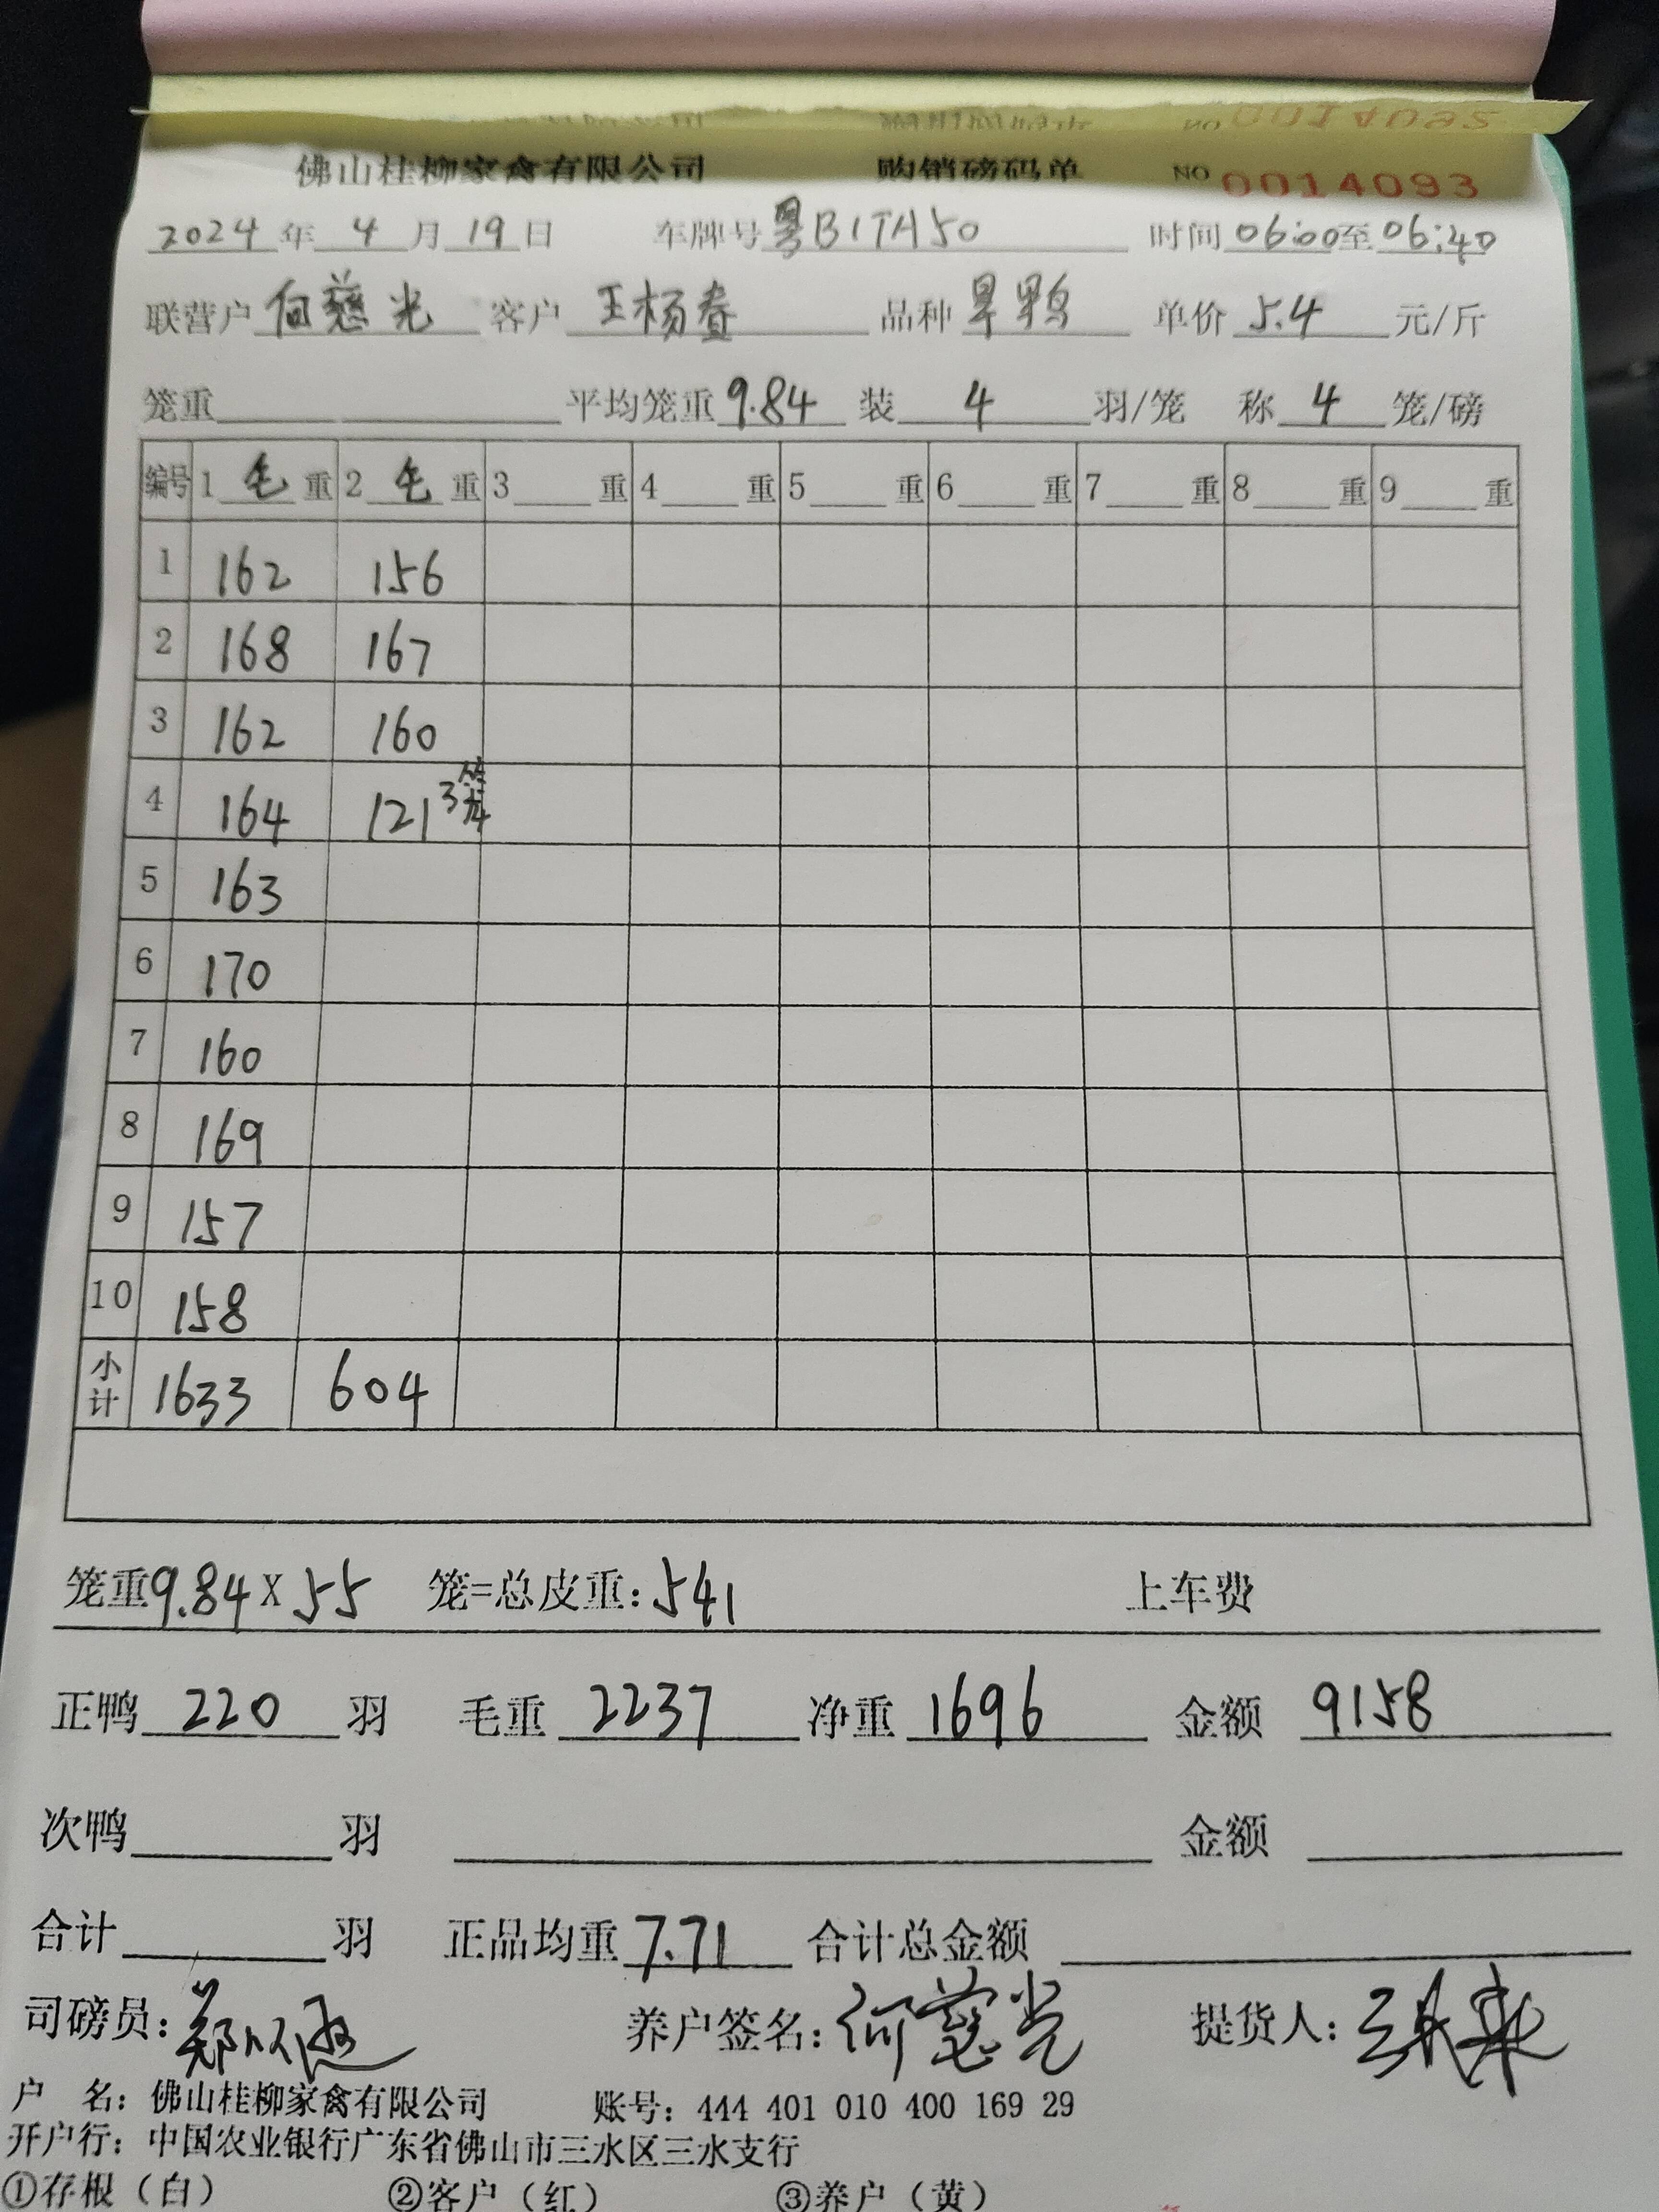 佛山桂柳家禽有限公司 购销磅码单 NO 0014093
2024年4月19日 车牌号粤B1TA50 时间06:00至06:40
联营户何慈光 客户王杨春 品种旱鸭 单价5.4元/斤
笼重 平均笼重9.84 装4羽/笼 称4笼/磅
编号 1毛重 2毛重 3重 4重 5重 6重 7重 8重 9重
1 162 156
2 168 167
3 162 160
4 164 121 3笼
5 163
6 170
7 160
8 169
9 157
10 158
小计 1633 604
笼重9.84X55 笼=总皮重:541 上车费
正鸭220羽 毛重2237 净重1696 金额9158
次鸭 羽 金额
合计 羽 正品均重7.71 合计总金额
司磅员: 养户签名:何慈光 提货人:
户 名: 佛山桂柳家禽有限公司 账号: 444 401 010 400 169 29
开户行: 中国农业银行广东省佛山市三水区三水支行
①存根（白） ②客户（红） ③养户（黄）